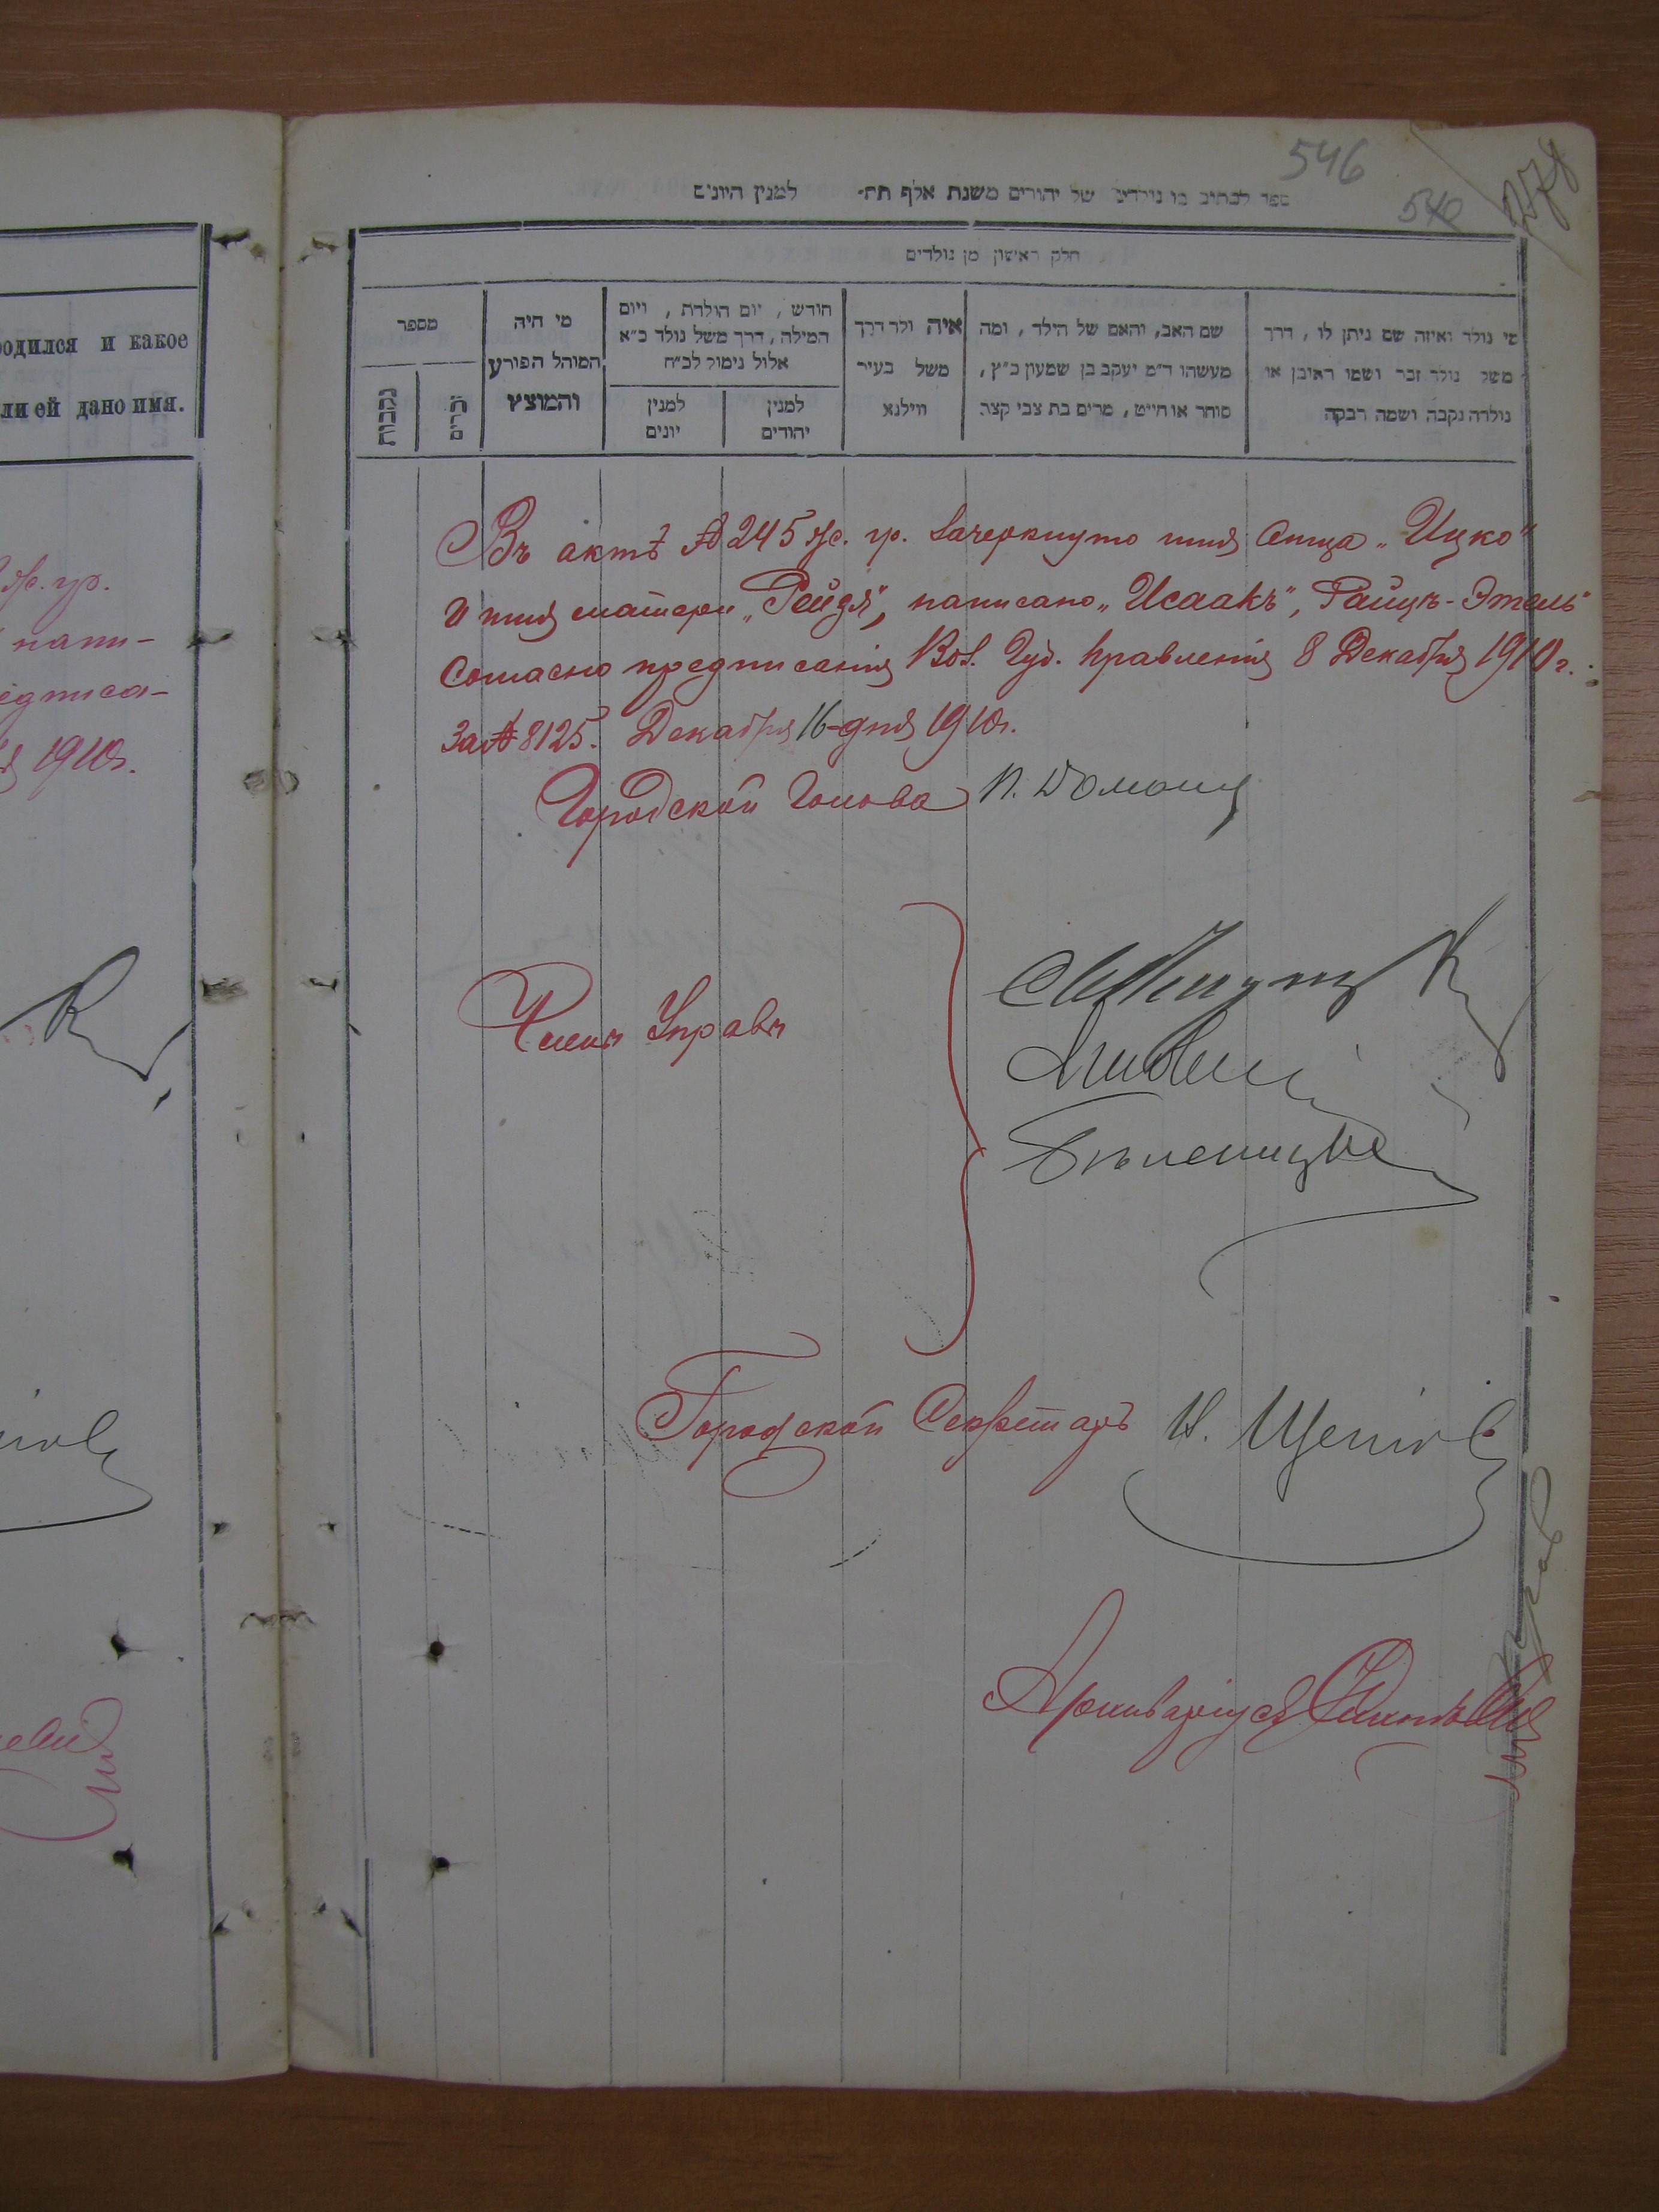 546
540
ספר לכתוב בו נולדים של יהודים משנת אלף תת׳ למנין היונים
חלק ראשון מן נולדים
מי נולד ואיזה שם ניתן לו, דרך
משל נולד זכר ושמו ראיבן או
נולדה נקבה ושמה רבקה
שם האב, והאם של הילד, ומה
מעשהו ד״מ יעקב בן שמעון כ״ץ,
סוחר או חייט, מרים בת צבי קצב
איה ולד דרך
משל בעיר
ווילנא
חודש, יום הולדת, ויום
המילה, דרך משל נולד כ״א
אלול נימול לכ״ח
למנין
יהודים
למנין
יונים
מי היה
המוהל הפורע
והמוצץ
מספר
זכרים
נקבות
одился и какое
ли ей дано имя.
Въ актѣ № 245 ж. гр. зачеркнуто имя Отца „Ицко"
и имя матери „Рейзя", написано „Исаакъ", Райцъ-Этель"
Согласно предписанія Вол. Губ. Правленія 8 Декабря 1910 г.
За № 8125. Декабря 16 дня 1910 г.
Городской Голова
Члены Управы
Городской Секретарь
Архиваріусъ
гр.
напи-
едписа-
1910 г.